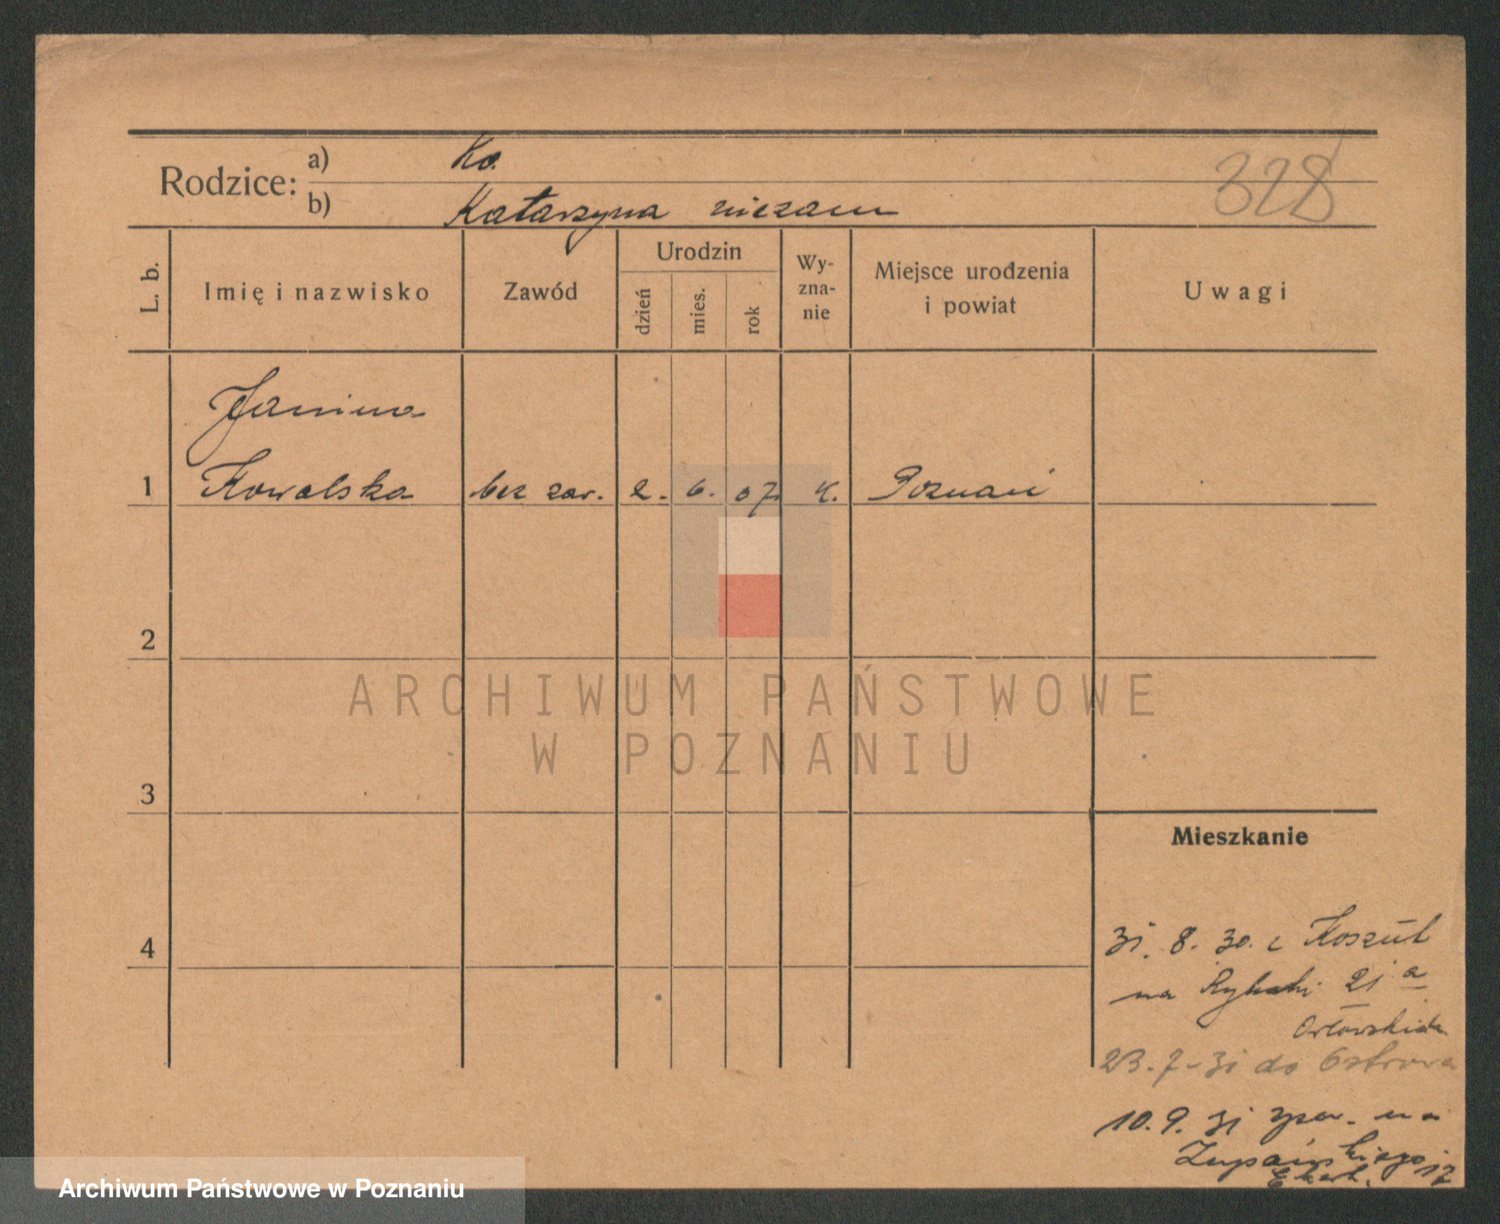 Rodzice:
a) Ko.
b) Katarzyna niezam
328
L. b.
Imię i nazwisko
Zawód
Urodzin
dzień
mies.
rok
Wy-
zna-
nie
Miejsce urodzenia
i powiat
Uwagi
Janina
1 Kowalska bez zaw. 2. 6. 07. k. Poznań
2
3
4
ARCHIWUM PAŃSTWOWE
W POZNANIU
Mieszkanie
31. 8. 30. z Koszut
na Rybaki 21 a
23. 7 - 31 do Ostrowa
10. 9. 31 na
Żupańskiego 17
Archiwum Państwowe w Poznaniu